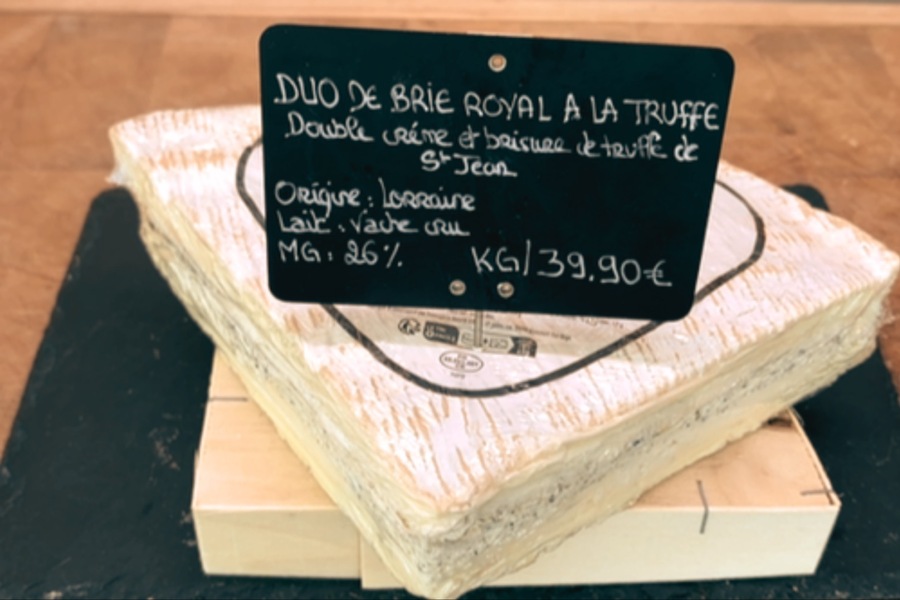 DUO DE BRIE ROYAL A LA TRUFFE
Double crème et brisure de truffe de
St Jean
Origine : Lorraine
Lait : Vache cru
MG : 26 %. KG/39.90€